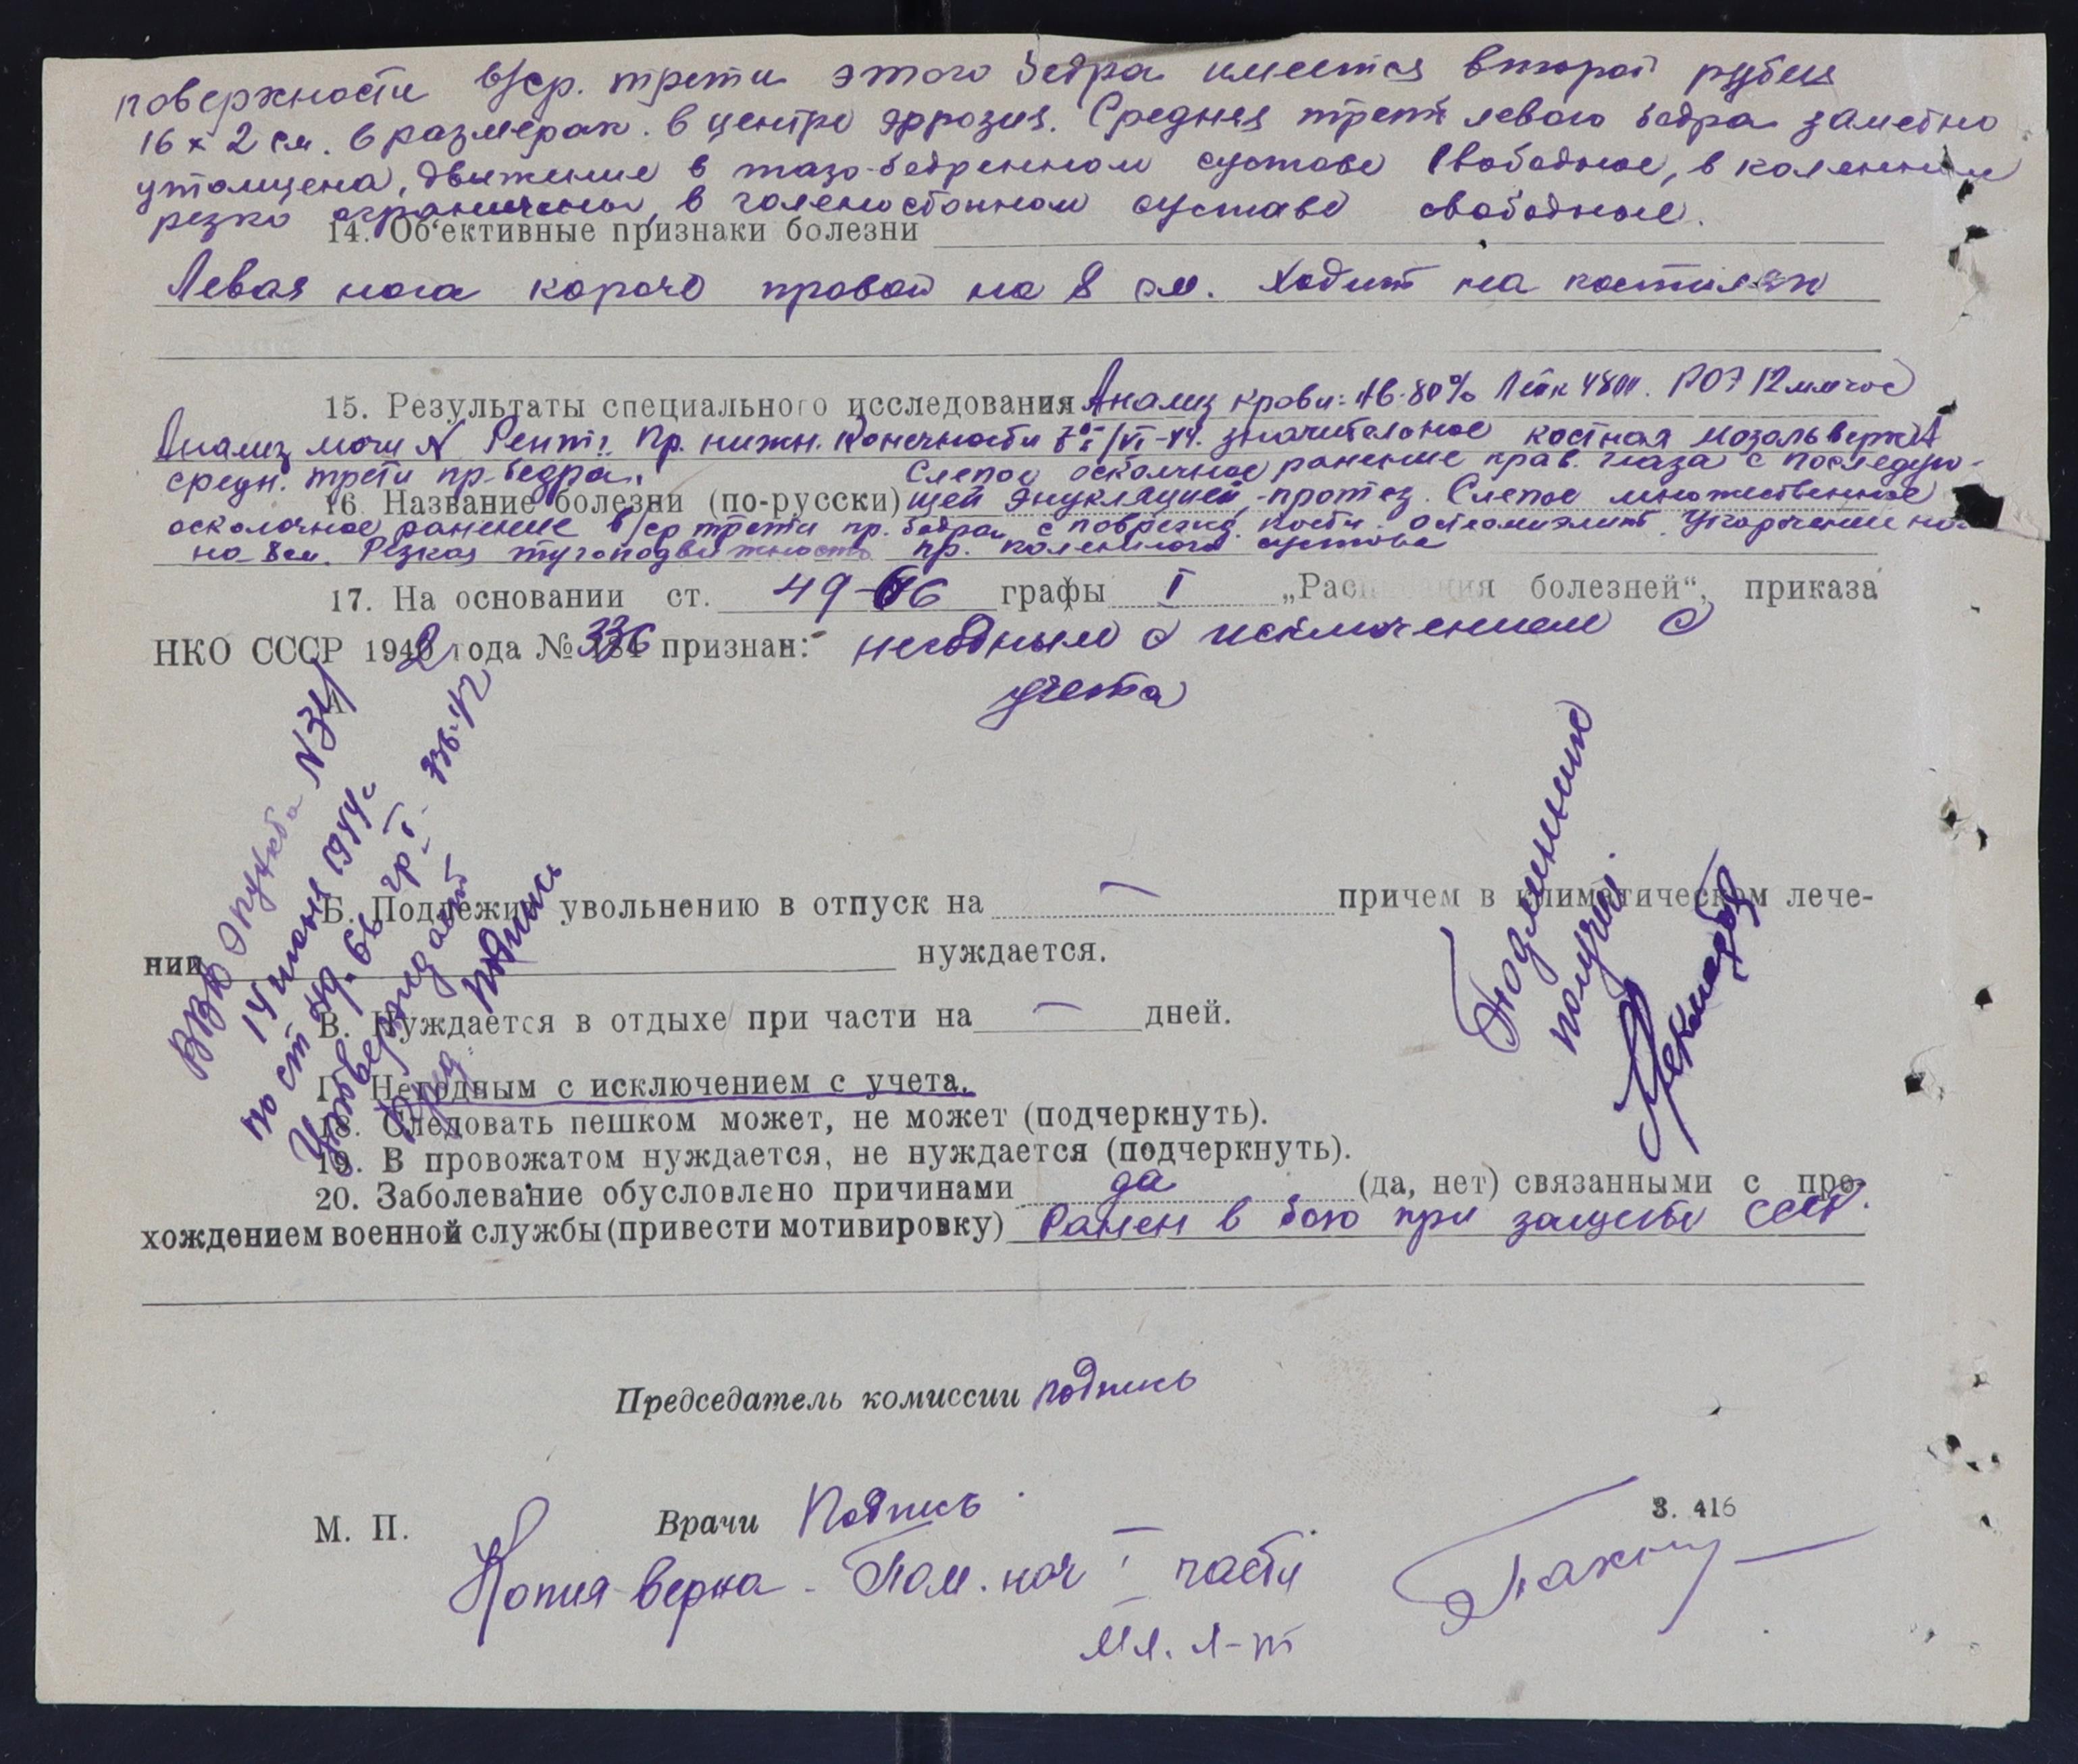 поверхности в/ср. трети этого бедра имеется второй рубец
16 х 2 см. в размерах. в центре эррозия. Средняя треть левого бедра заметно
утолщена, движение в тазо-бедренном суставе свободное, в коленном
резко ограничены, в голеностопном суставе свободные.
14. Об'ективные признаки болезни
Левая нога короче правой на 8 см. Ходит на костылях
15. Результаты специального исследования Анализ крови: Нв-80% Лейк 4800. РОЭ 12 мм час
Анализ мочи N Рентг. Пр. нижн. конечности /VI-44. значительное костная мозоль верхн
средн. трети пр. бедра. Слепое осколочное ранение прав. глаза с последую-
16. Название болезни (по-русски) щей энуклеацией, -протез. Слепое множественное
осколочное ранение в/ср трети пр. бедра с поврежд. кости. остеомиэлит. Укорочение но
на 8см. Резкая тугоподвижность пр. коленного сустава
17. На основании ст. 49-66 графы I „Расписания болезней“, приказа
НКО СССР 1942 года № 336 признан: негодным с исключением с
учета
ВВК Эпункта N 34
14 июня 1944 г
по ст 49-66 гр-I- 336-42
Утверждает
подпись
Подлинник
получил
Б. Подлежит увольнению в отпуск на — причем в климатическом лече-
нии нуждается.
В. Нуждается в отдыхе при части на — дней.
Г. Негодным с исключением с учета.
18. Следовать пешком может, не может (подчеркнуть).
19. В провожатом нуждается, не нуждается (подчеркнуть).
20. Заболевание обусловлено причинами да (да, нет) связанными с про-
хождением военной службы (привести мотивировку) Ранен в бою при защите СССР.
Председатель комиссии подпись
М. П. Врачи Подпись
З. 416
Копия верна - Пом. нач I части
Мл. л-т